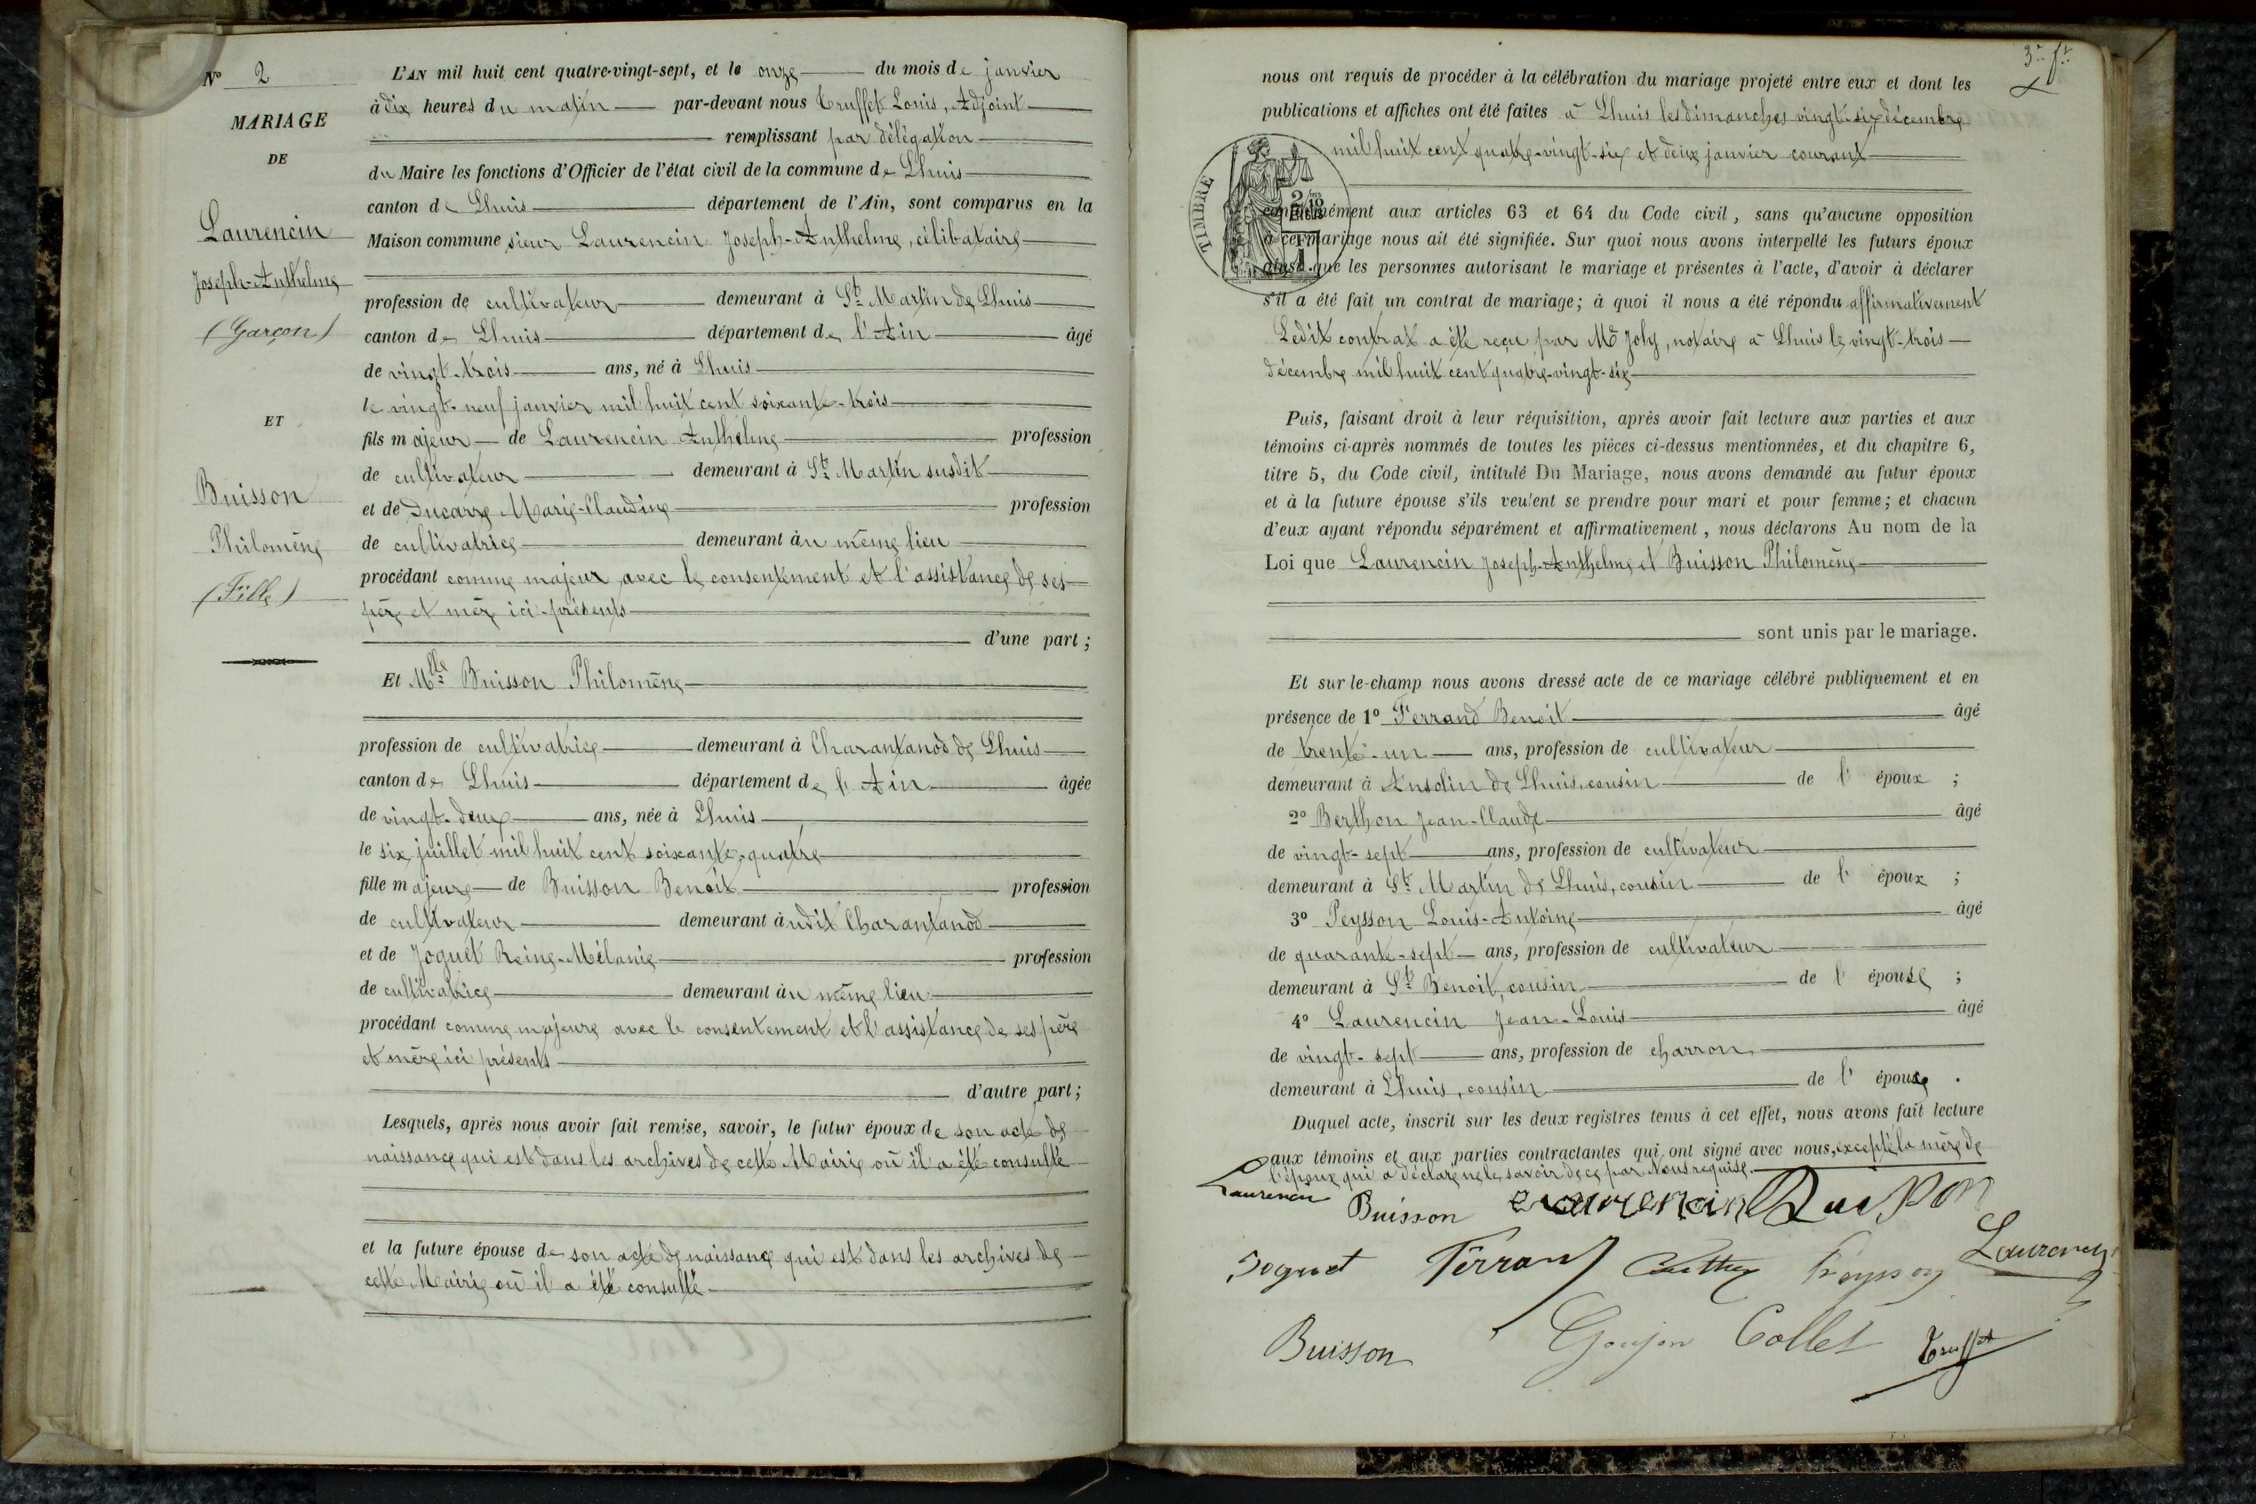 N° 2
MARIAGE
DE
Laurencin
Joseph-Anthelme
(Garçon)
ET
Buisson
Philomène
(Fille)
L'AN mil huit cent quatre-vingt-sept, et le onze du mois de janvier
à dix heures du matin par-devant nous Truffet Louis, Adjoint
remplissant par délégation
du Maire les fonctions d'Officier de l'état civil de la commune de Lhuis
canton de Lhuis département de l'Ain, sont comparus en la
Maison commune sieur Laurencin Joseph-Anthelme, célibataire
profession de cultivateur demeurant à St Martin de Lhuis
canton de Lhuis département de l'Ain âgé
de vingt-trois ans, né à Lhuis
le vingt-neuf janvier mil huit cent soixante-trois
fils majeur de Laurencin Anthelme profession
de cultivateur demeurant à St Martin susdit
et de Ducarre Marie-Claudine profession
de cultivatrice demeurant au même lieu
procédant comme majeur avec le consentement et l'assistance de ses
père et mère ici présents
d'une part ;
Et Mlle Buisson Philomène
profession de cultivatrice demeurant à Charantanod de Lhuis
canton de Lhuis département de l'Ain âgée
de vingt-deux ans, née à Lhuis
le six juillet mil huit cent soixante-quatre
fille majeure de Buisson Benoît profession
de cultivateur demeurant audit Charantanod
et de Joguet Reine-Mélanie profession
de cultivatrice demeurant au même lieu
procédant comme majeure avec le consentement et l'assistance de ses père
et mère ici présents
d'autre part ;
Lesquels, après nous avoir fait remise, savoir, le futur époux de son acte de
naissance qui est dans les archives de cette Mairie où il a été consulté
et la future épouse de son acte de naissance qui est dans les archives de
cette Mairie où il a été consulté
3e ft
nous ont requis de procéder à la célébration du mariage projeté entre eux et dont les
publications et affiches ont été faites à Lhuis les dimanches vingt-six décembre
mil huit cent quatre-vingt-six et deux janvier courant
TIMBRE
conformément aux articles 63 et 64 du Code civil, sans qu'aucune opposition
à ce mariage nous ait été signifiée. Sur quoi nous avons interpellé les futurs époux
ainsi que les personnes autorisant le mariage et présentes à l'acte, d'avoir à déclarer
s'il a été fait un contrat de mariage ; à quoi il nous a été répondu affirmativement
Ledit contrat a été reçu par Me Joly, notaire à Lhuis le vingt-trois
décembre mil huit cent quatre-vingt-six
Puis, faisant droit à leur réquisition, après avoir fait lecture aux parties et aux
témoins ci-après nommés de toutes les pièces ci-dessus mentionnées, et du chapitre 6,
titre 5, du Code civil, intitulé Du Mariage, nous avons demandé au futur époux
et à la future épouse s'ils veulent se prendre pour mari et pour femme ; et chacun
d'eux ayant répondu séparément et affirmativement, nous déclarons Au nom de la
Loi que Laurencin Joseph-Anthelme et Buisson Philomène
sont unis par le mariage.
Et sur-le-champ nous avons dressé acte de ce mariage célébré publiquement et en
présence de 1° Ferrand Benoit âgé
de trente-un ans, profession de cultivateur
demeurant à Ansolin de Lhuis, cousin de l'époux ;
2° Berthon Jean-Claude âgé
de vingt-sept ans, profession de cultivateur
demeurant à St Martin de Lhuis, cousin de l'époux ;
3° Peysson Louis-Antoine âgé
de quarante-sept ans, profession de cultivateur
demeurant à St Benoit, cousin de l'épouse ;
4° Laurencin Jean-Louis âgé
de vingt-sept ans, profession de charron
demeurant à Lhuis, cousin de l'épouse.
Duquel acte, inscrit sur les deux registres tenus à cet effet, nous avons fait lecture
aux témoins et aux parties contractantes qui ont signé avec nous, excepté la mère de
l'époux qui a déclaré ne le savoir de ce par Nous requise.
Laurencin Buisson Laurencin Buisson
Joguet Ferrand Peysson Laurencin
Buisson Goujon Collet Truffet